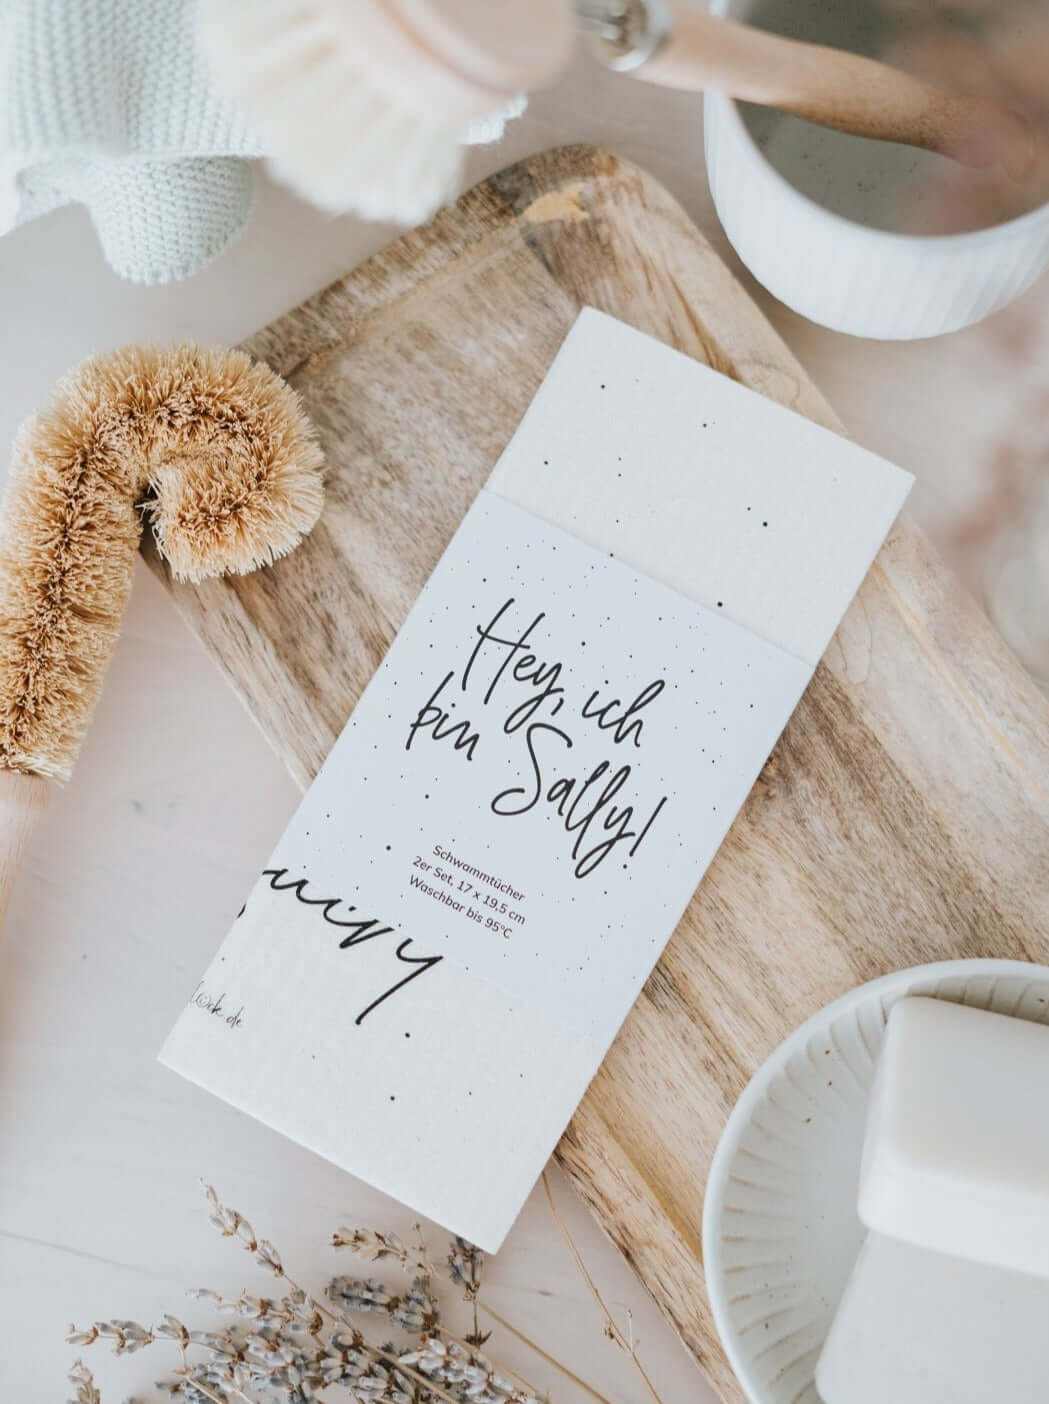 Hey, ich
bin Sally!
Schwammtücher
2er Set, 17 x 19,5 cm
Waschbar bis 95°C